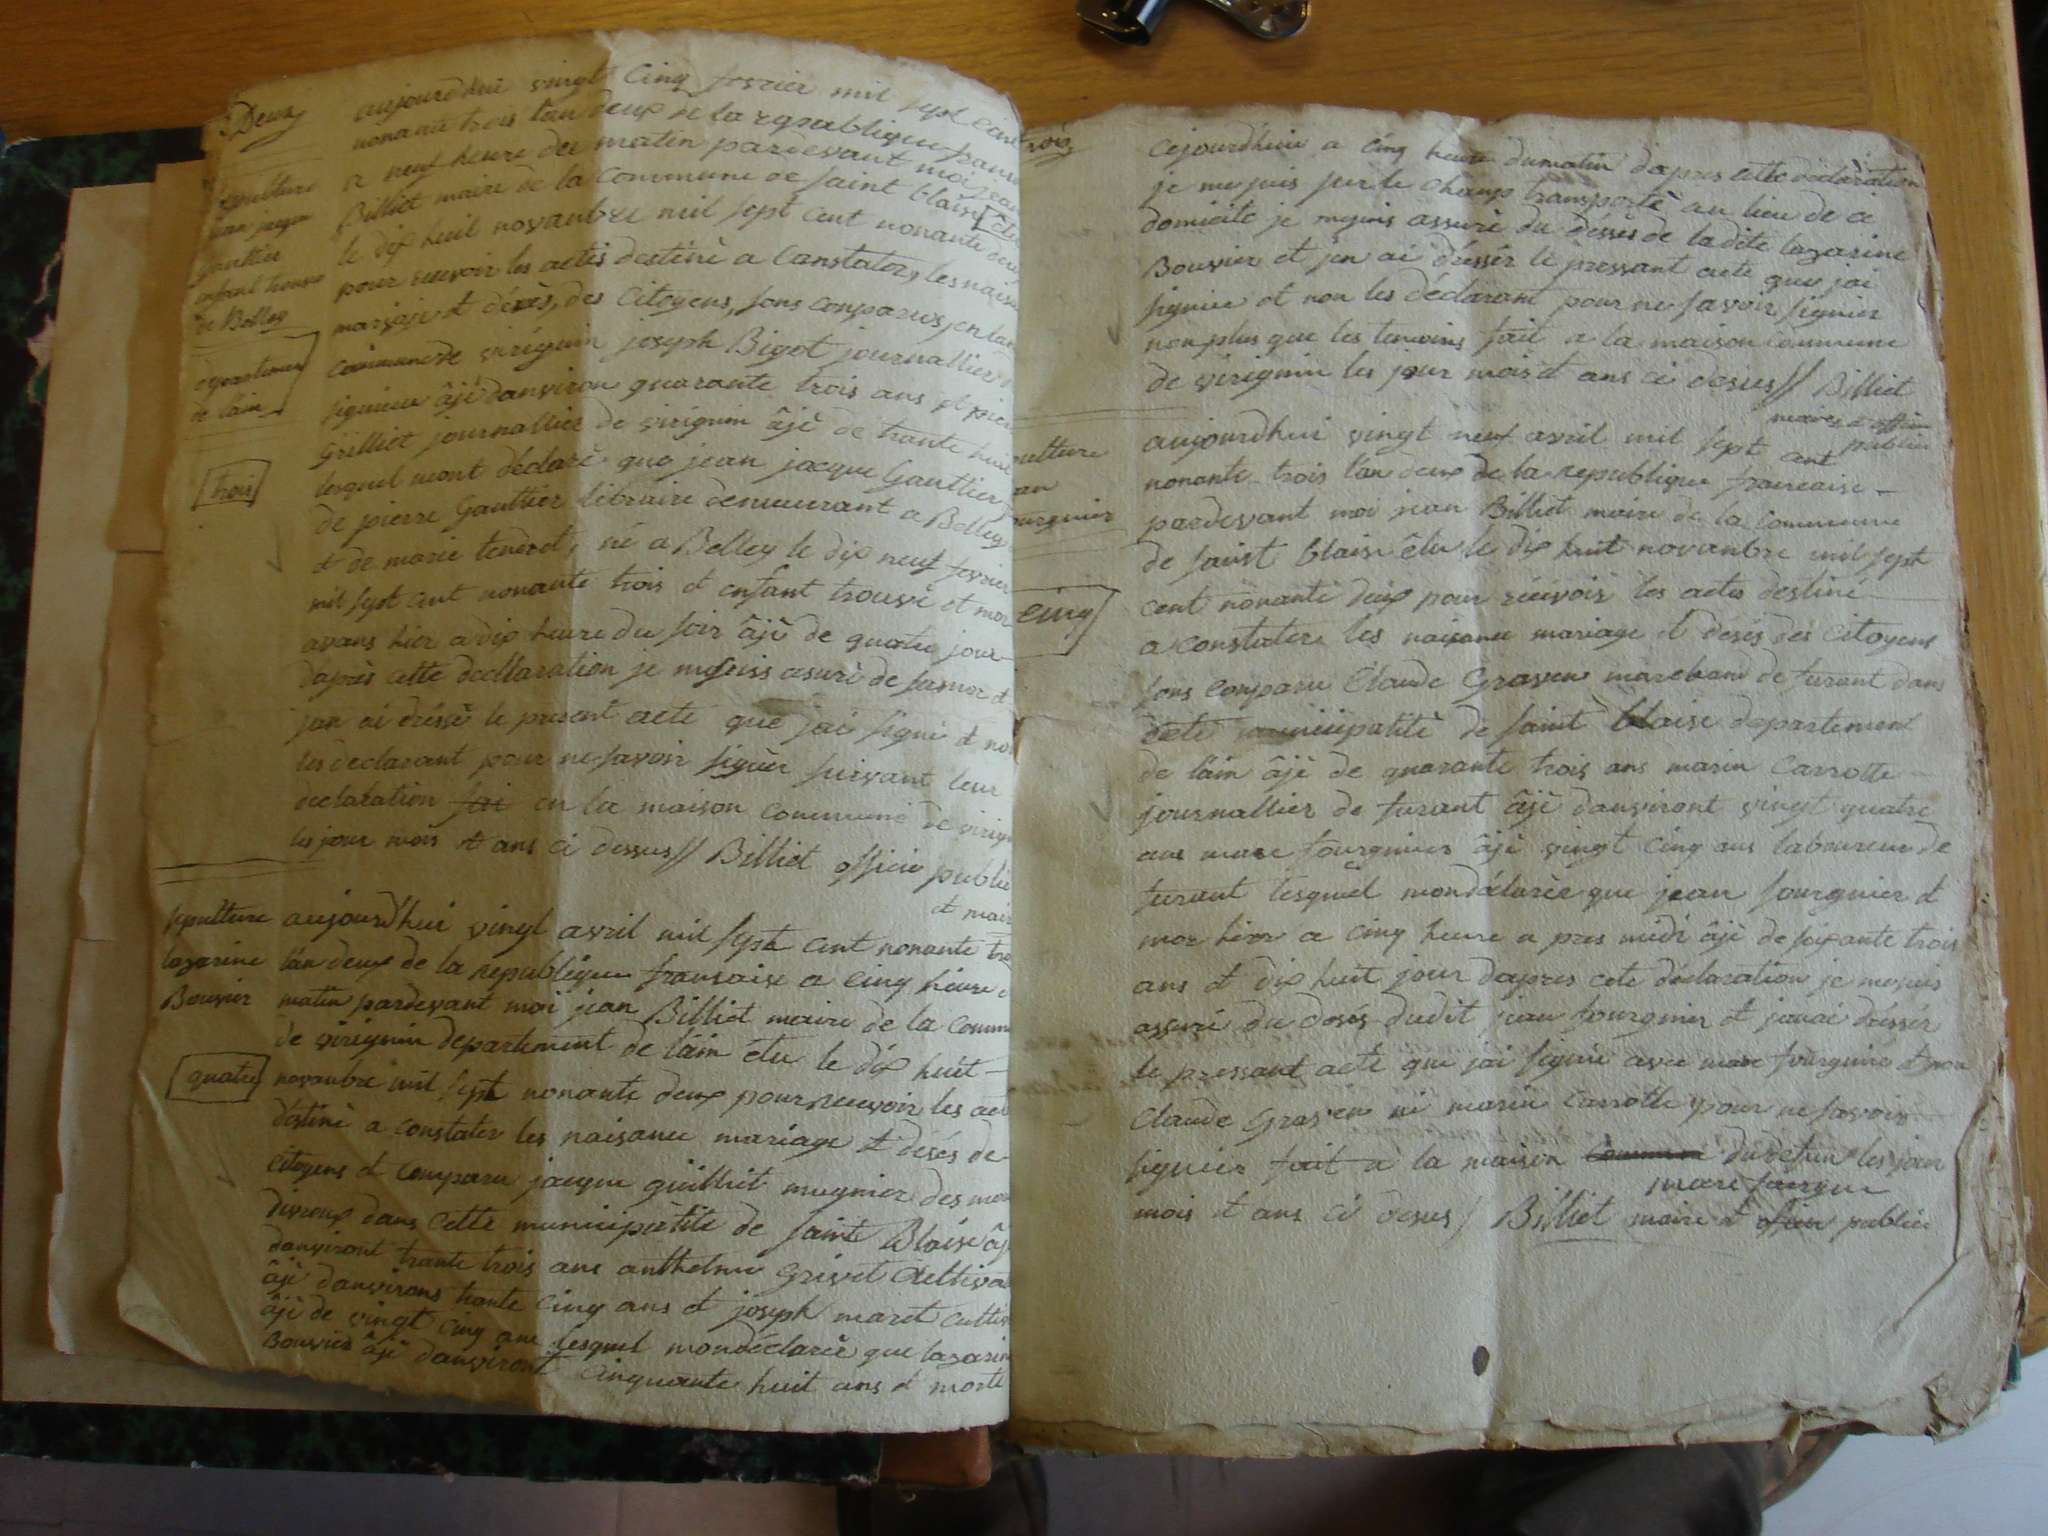 Deux
sepulture
jean jaque
Gauttier
enfant trouve
de Belley
departement
de l'ain
trois
aujourdhui vingt Cinq fevrier mil sept cent
nonante trois l'an deux de la republique franse
a neuf heure du matin pardevant moi jean
Billiet maire de la Commune de saint blaise élu
le dix huit novanbre mil sept cent nonante deux
pour recevoir les actes destiné a Constater, les naisa
mariaje et décès, des Citoyens, sons comparus en la
commune de virignin joseph Bigot journallier
siquieu âjé danviron quarante trois ans et pierre
Grilliet journallier de virignin âjé de trante huit
lesquel mont déclaré que jean jacque Gauttier
de pierre Gauttier libraire demeurant a Belley
et de marie tenèret, né a Belley le dix neuf fevrier
mil sept cent nonante trois et enfant trouvé et mor
avans hier a dix heure du soir âjé de quatre jour
daprès cette decllaration je me suis asuré de sa mor et
jan ai dréssé le present acte que jai signé et non
les declarant pour ne savoir siguer suivant leur
declaration fai en la maison Commune de virign
les jour mois et ans ci dessus // Billiet officie public
et mair
sepulture
lazarine
Bouvier
quatre
aujourdhui vingt avril mil sept cent nonante tro
l'an deux de la republique fransaise a cinq heure d
matin pardevant moi jean Billiet maire de la Commu
de virignin departement de lain élu le dix huit
novanbre mil sept nonante deux pour recevoir les act
destiné a constater les naisance mariage et désés de
citoyens et Comparu jacque guilliet mugnier des mou
divroux dans cette municipalité de saint Blaise âj
danviront trante trois ans anthelme Grivet Cultiva
âjé danvirons trante cinq ans et joseph maret cultiv
âjé de vingt cinq ans lesquel mondéclarée que lazarin
Bouvier âjé danviront cinquante huit ans et morte
rois
cejourdhui a cinq heure du matin dapres cette déclaration
je me suis sur le champ transporté au lieu de ce
domicile je me suis assuré du déssès de ladite lazarine
Bouvier et jen ai dréssér le pressant acte que jai
siguiee et non les déclarant pour ne savoir siguier
non plus que les temoins fait a la maison commune
de virignin les jour mois et ans ci desus // Billiet
maire et officier
public
pulture
an
ourgnier
cinq
aujourdhui vingt neuf avril mil sept cent
nonante trois l'an deux de la republique francaise
pardevant moi jean Billiet maire de la commune
de saint blaise élu le dix huit novanbre mil sept
cent nonante deux pour récévoir les actes destiné
a constatere les naisance mariage et desés des citoyens
sons comparu Claude Graven marchand de furant dans
municipalité de saint blaise departement
de l'ain âjé de quarante trois ans marin Carrotte
journallier de furant âjé danviront vingt quatre
ans marc fourgnier âjé vingt cinq ans laboureur de
furant lesquel mondéclarée que jean fourgnier et
mor hier a cinq heure a pres midi âjé de soixante trois
ans et dix huit jour dapres cete déclaration je me suis
assuré du désés dudit jean fourgnier et janai dréssér
le pressant acte que jai siguie avec marc fourgnire et non
Claude Graven ni marin Carrotte pour ne savoir
siguier fait a la maison commune dudefun les jour
marc fourgni
mois et ans ci desus / Billiet maire et oficie public